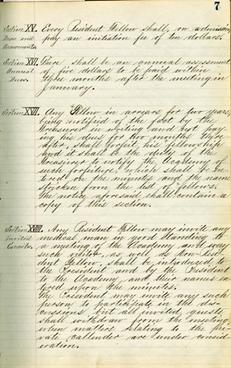 7
Section XV. Every Resident Fellow shall, on admission,
pay an initiation fee of ten dollars.
Section XVI. There shall be an annual assessment
Annual of five dollars to be paid within
Dues. two months after the meeting in
January.
Section XVII. Any Fellow in arrears for two years,
being notified of the fact by the
Treasurer in writing and not pay-
ing his dues for two months there-
after, shall forfeit his fellowship
and it shall be the duty of the
Treasurer to notify the Academy of
such forfeiture, which shall be en-
tered on the minutes and the name
stricken from the list of fellows.
The notice aforesaid shall contain a
copy of this section.
Section XVIII. Any Resident Fellow may invite any
Invited medical man in good standing to
Guests. a meeting of the Academy and every
such visitor, as well as Non-Resi-
dent Fellow, shall be introduced to
the President and by the President
to the Academy and their names en-
tered upon the minutes.
The President may invite any such
person to participate in the dis-
cussions but all invited guests
shall withdraw from the meeting
when matters relating to the pri-
vate are under consid-
eration.